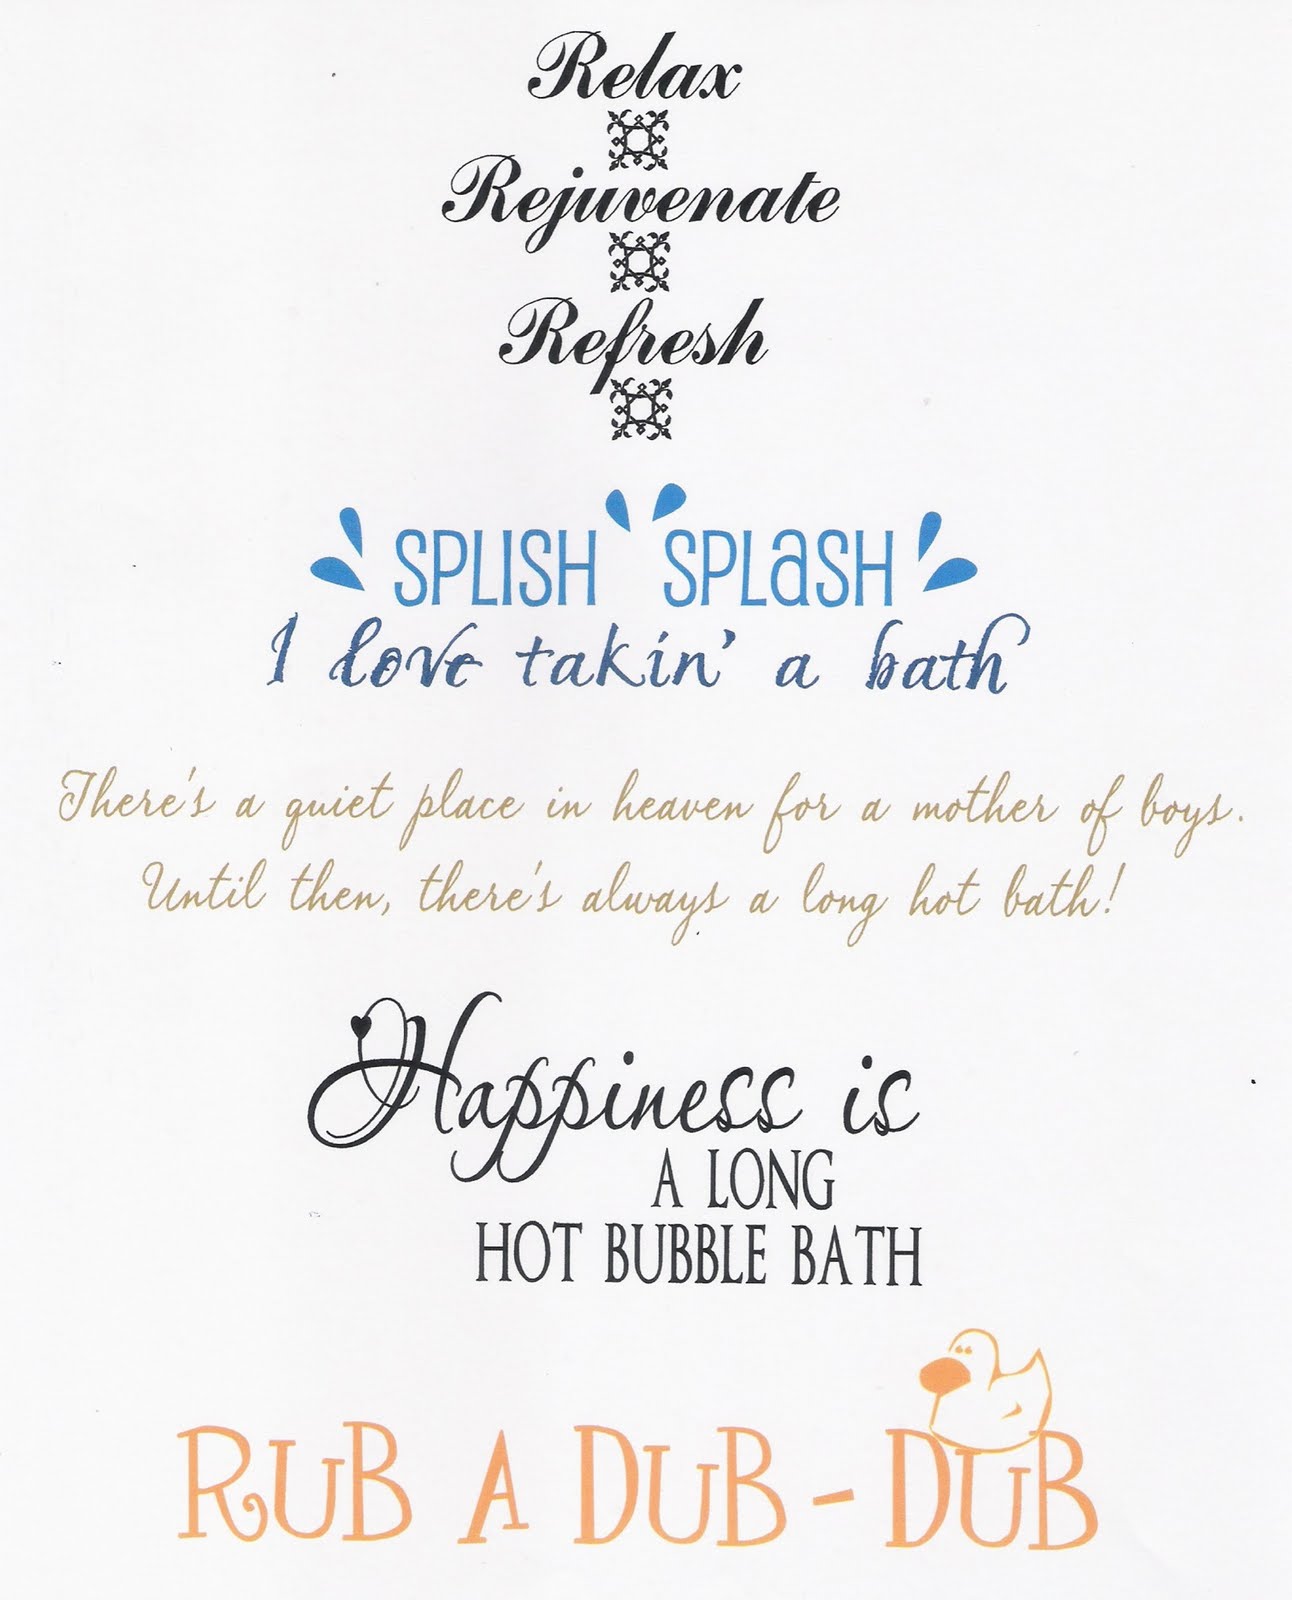 Relax
Rejuvenate
Refresh
SPLISH SPLaSH
I love takin' a bath
There's a quiet place in heaven for a mother of boys.
Until then, there's always a long hot bath!
Happiness is
A LONG
HOT BUBBLE BATH
RUB A DUB - DUB